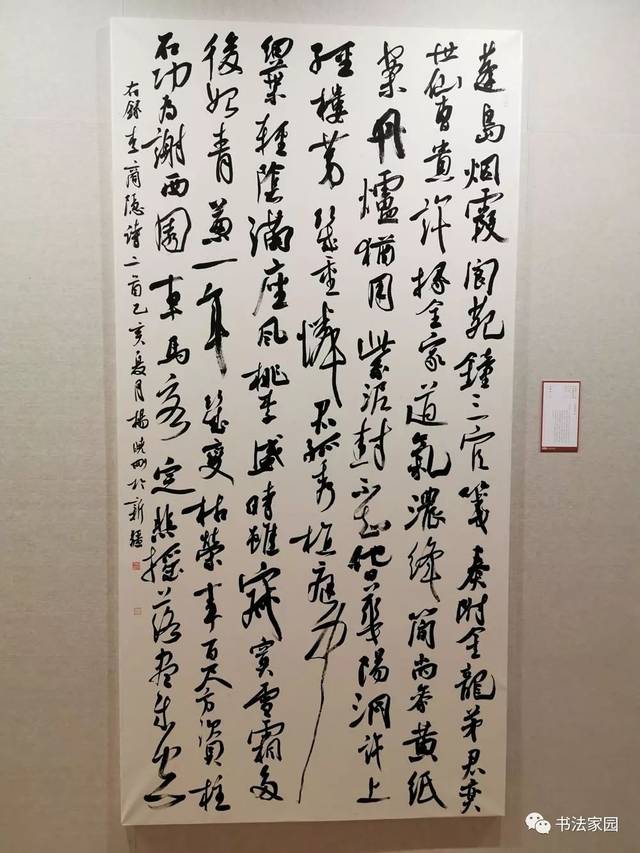 蓬島烟霞閬苑鐘三官箋奏附金龍茅君奕
世仙曹貴許掾全家道氣濃絳簡尚參黄紙
案丹爐猶用紫泥封不知他日華陽洞許上
經樓第幾重憐君孤秀植庭中
細葉輕陰滿座風桃李盛時雖寂寞雪霜多
後始青蔥一年幾變枯榮事百尺方資柱
石功為謝西園車馬客定悲搖落盡成空
右錄李商隱詩二首己亥夏月楊映於新疆
书法家园